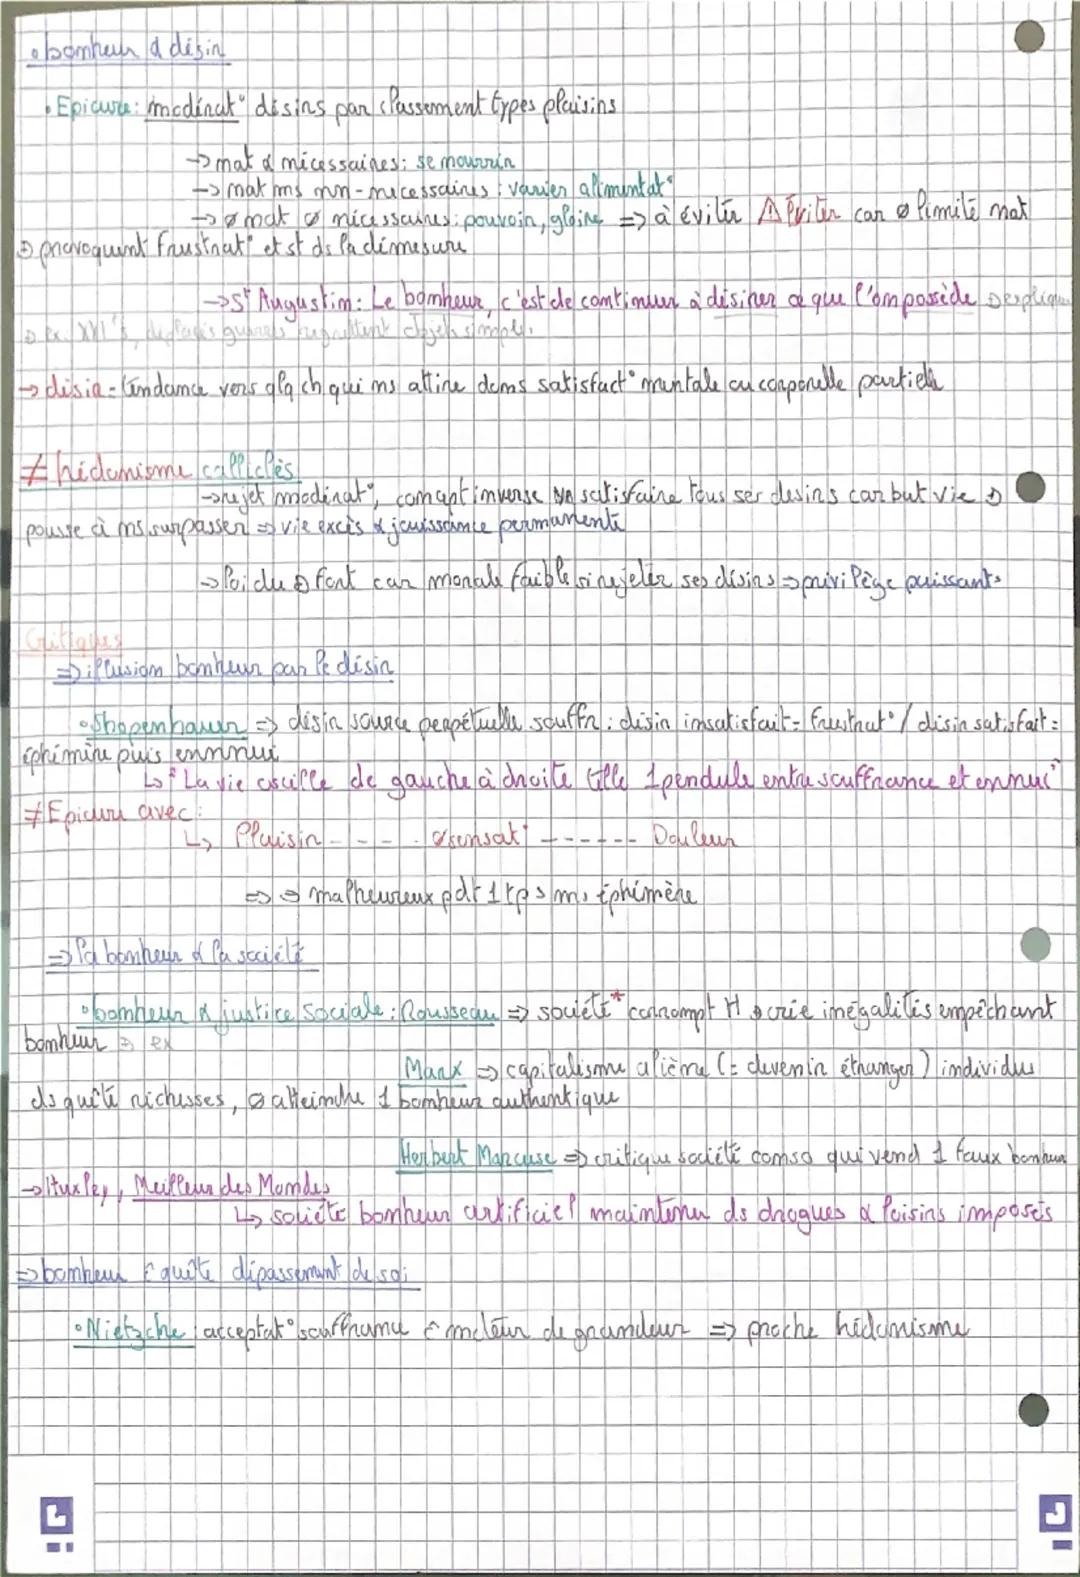 • bonheur & désir
• Epicure: modérat° désirs par classement types plaisirs
→ nat & nécessaires: se nourrir
→ nat ms non-nécessaires : varier alimentat°
→ ø nat ø nécessaires: pouvoir, gloire => à éviter ⚠ Éviter car ø limite nat
provoquent frustrat° et st ds la démesure
→ St Augustin: Le bonheur, c'est de continuer à désirer ce que l'on possède
ex. XXI's, guerres regrettent objets simples.
→ désir = tendance vers qlq ch qui ns attire dans satisfact° mentale ou corporelle partielle
≠ hédonisme calliclès
→ rejet modérat°, comant inverse satisfaire tous ser désirs car but vie
pousse à ns surpasser => vie excès & jouissance permanente
→ loi du + fort car morale faible si rejeter ses désirs => privilège puissants
Critiques
=> illusion bonheur par le désir
• Shopenhauer => désir source perpétuelle souffr : désir insatisfait = frustrat° / désir satisfait =
éphémère puis ennnui
↳ "La vie oscille de gauche à droite tlle 1 pendule entre souffrance et ennui"
≠ Epicure avec :
↳ Plaisir - - - - øsensat° - - - - - - Douleur
=> malheureux pdt 1 tps ms éphémère
=> la bonheur & la société
• bonheur & justice sociale : Rousseau => société* corrompt H crée inégalités empêchant
bonheur ex
Marx => capitalisme aliène (= devenir étranger) individus
ds quête richesses, ø atteindre 1 bonheur authentique
Herbert Marcuse => critique société conso qui vend 1 faux bonheur
→ Huxley, Meilleur des Mondes
↳ société bonheur artificiel maintenu ds drogues & loisirs imposés
=> bonheur ê quête dépassement de soi
• Nietzche : acceptat° souffrance ê moteur de grandeur => proche hédonisme